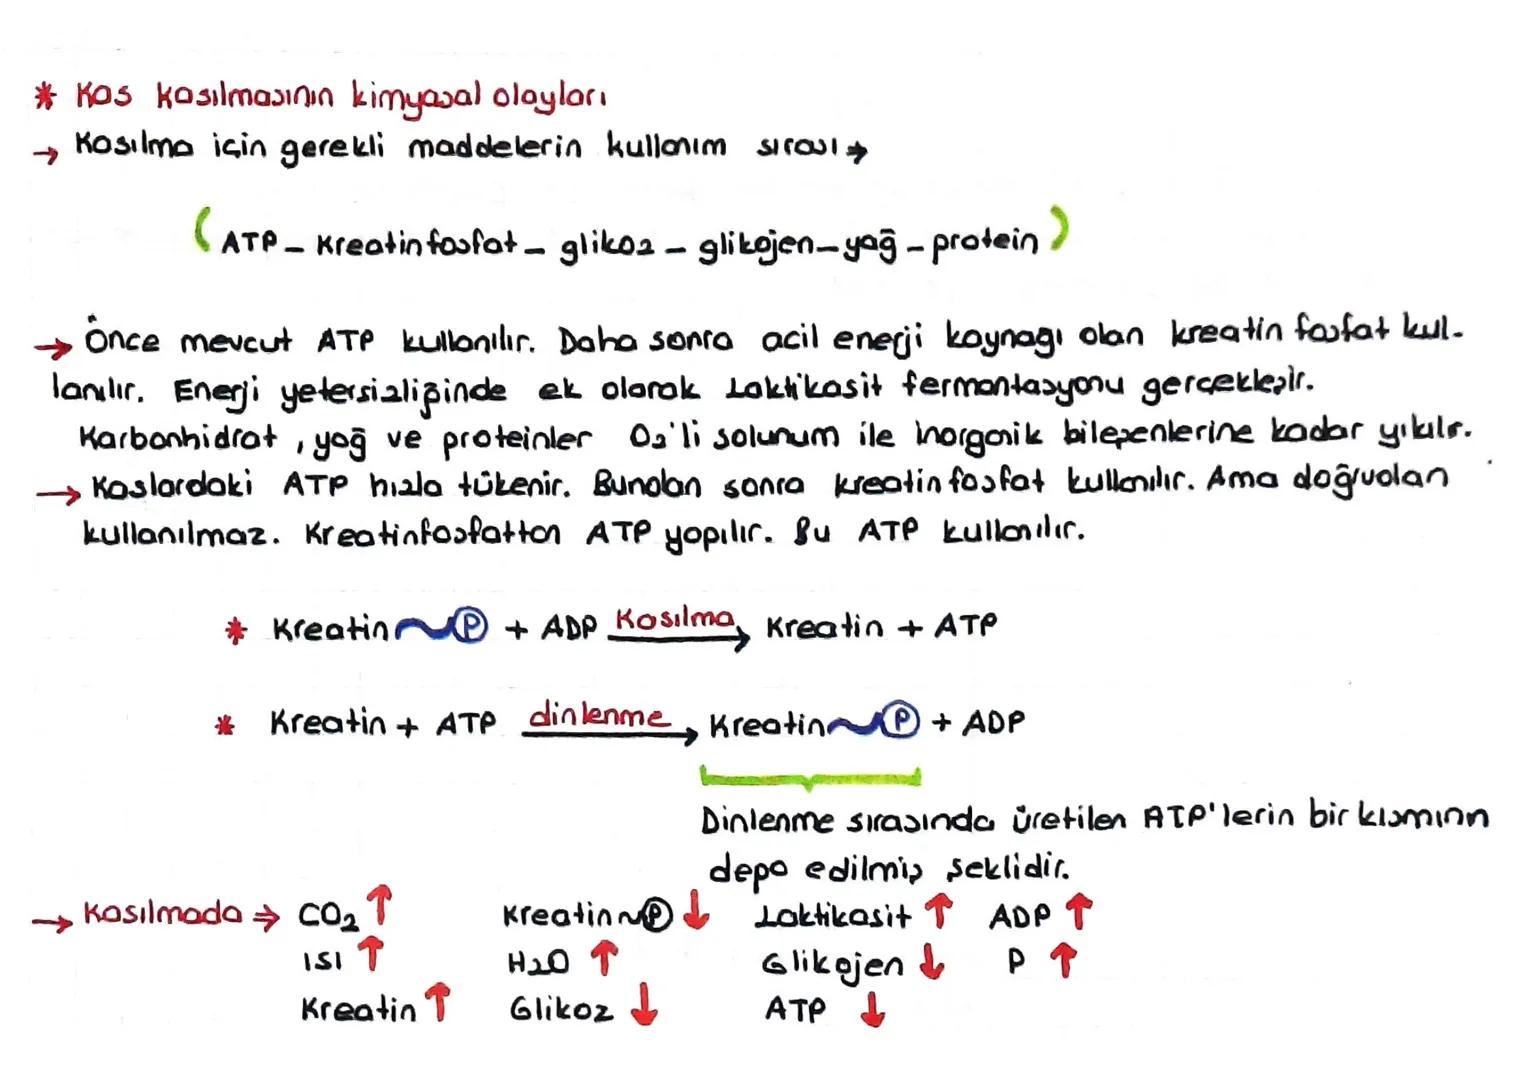 * Kas kasılmasının kimyasal olayları
→ Kasılma için gerekli maddelerin kullanım sırası →
(ATP - Kreatin fosfat - glikoz - glikojen - yağ - protein)
→ Önce mevcut ATP kullanılır. Daha sonra acil enerji kaynagı olan kreatin fosfat kul-
lanılır. Enerji yetersizliğinde ek olarak Laktikasit fermantasyonu gerçekleşir.
Karbonhidrat, yağ ve proteinler O₂'li solunum ile inorganik bileşenlerine kadar yıkılır.
→ Kaslardaki ATP hızla tükenir. Bundan sonra kreatin fosfat kullanılır. Ama doğrudan
kullanılmaz. Kreatinfosfattan ATP yapılır. Bu ATP kullanılır.
* Kreatin~P + ADP Kasılma→ Kreatin + ATP
* Kreatin + ATP dinlenme→ Kreatin~P + ADP
Dinlenme sırasında üretilen ATP'lerin bir kısmının
depo edilmiş şeklidir.
→ Kasılmada ⇒ CO₂ ↑ Kreatin~P ↓ Laktikasit ↑ ADP ↑
ısı ↑ H₂O ↑ Glikojen ↓ P ↑
Kreatin ↑ Glikoz ↓ ATP ↓